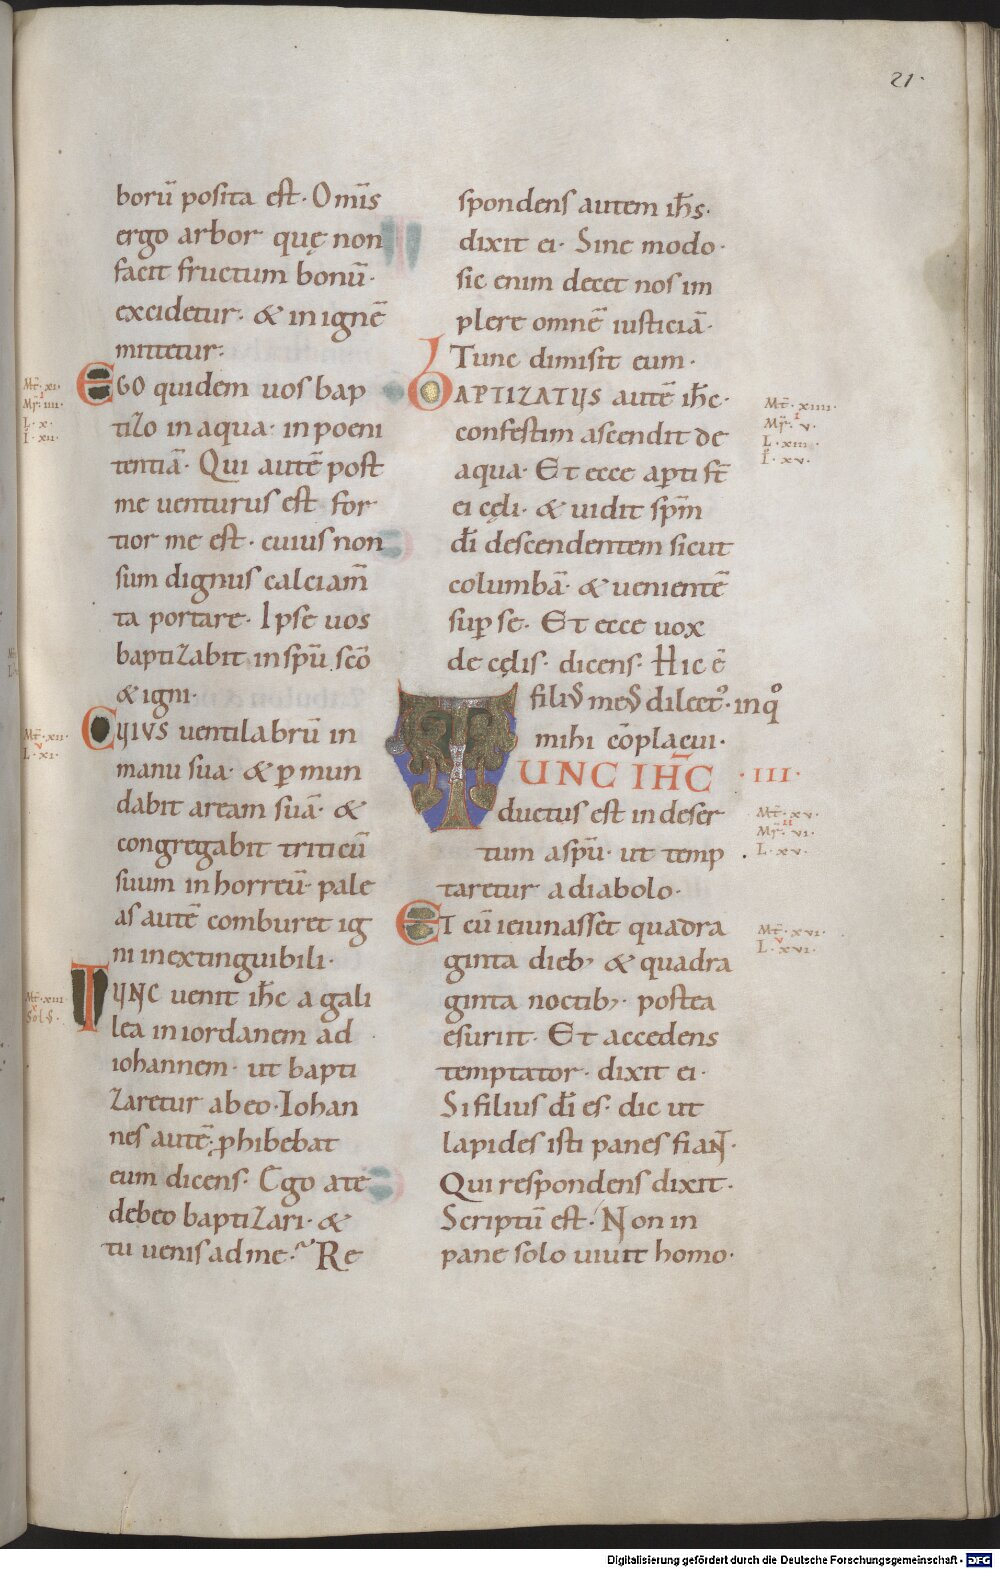 21·
borū posita est· Omīs
ergo arbor quę non
facit fructum bonū·
excidetur· & in ignē
mittetur·
EGO quidem uos bap
tizo in aqua· in poeni
tentiā· Qui autē post
me uenturus est for
tior me est· cuius non
sum dignus calciam̄
ta portare· Ipse uos
baptizabit in sp̄u sc̄o
& igni·
CUIVS uentilabrū in
manu sua· & p̄mun
dabit aream suā· &
congregabit triticū
suum in horreū· pale
as autē comburet ig
ni inextinguibili·
TUNC uenit ih̄c a gali
lea in iordanem ad
iohannem· ut bapti
zaretur ab eo· Iohan
nes autē· ꝓhibebat
eum dicens· Ego a te
debeo baptizari· &
tu uenis ad me· Re
Mt̄·xi·
Mr̄·iiii·
L·x·
I·xii·
Mt̄·xii·
L·xi·
Mt̄·xiii·
Solꝰ·
spondens autem ih̄s·
dixit ei· Sine modo·
sic enim decet nos im
plere omnē iusticiā·
Tunc dimisit eum·
BAPTIZATUS autē ih̄c·
confestim ascendit de
aqua· Et ecce ap̄ti sт̄
ei cęli· & uidit sp̄m
dī descendentem sicut
columbā· & uenientē
sup̄ se· Et ecce uox
de cęlis· dicens· Hic ē
filiꝰ meꝰ dilectꝰ· in qͦ
mihi cōplacui·
TUNC IH̄C ·III·
ductus est in deser
tum a sp̄u· ut temp
taretur a diabolo·
ET cū ieiunasset quadra
ginta dieb; & quadra
ginta noctib;· postea
esuriit· Et accedens
temptator· dixit ei·
Si filius dī es· dic ut
lapides isti panes fiant·
Qui respondens dixit·
Scriptū est· Non in
pane solo uiuit homo·
Mt̄·xiiii·
Mr̄·v·
L·xiii·
I·xv·
Mt̄·xv·
Mr̄·vi·
L·xv·
Mt̄·xvi·
L·xvi·
Digitalisierung gefördert durch die Deutsche Forschungsgemeinschaft - DFG